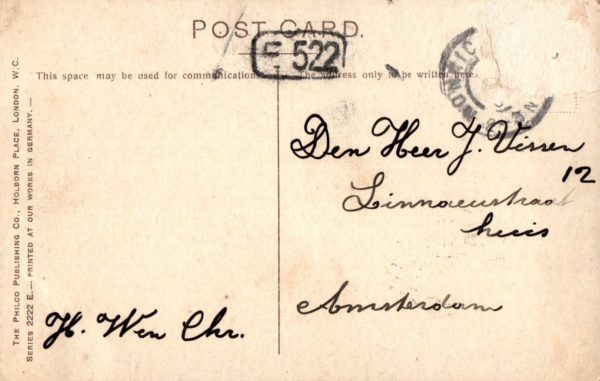 POST CARD.
E 522
This space may be used for communication.
The address only to be written here.
Den Heer J. Vissen
12
Linnaeustraat
huis
Amsterdam
H. Wen Chr.
THE PHILCO PUBLISHING CO., HOLBORN PLACE, LONDON, W.C.
SERIES 2222 E. — PRINTED AT OUR WORKS IN GERMANY. —